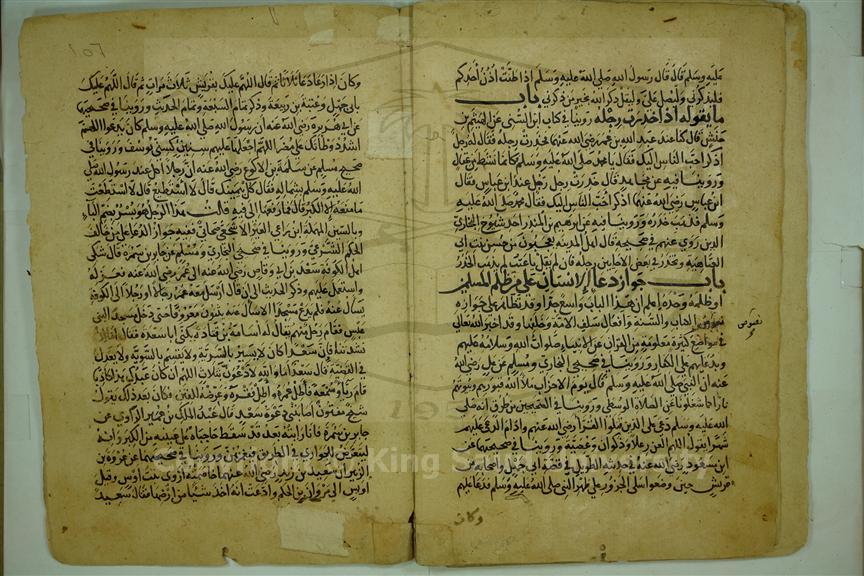 عليه وسلم قال قال رسول الله صلى الله عليه وسلم اذا طنت أذن أحدكم
فليذكرني وليصل علي وليقل ذكر الله بخير من ذكرني باب
ما يقوله اذا خدرت رجله روينا في كتاب ابن السني عن الهيثم بن
حنش قال كنا عند عبد الله بن عمر رضي الله عنهما فخدرت رجله فقال له رجل
اذكر احب الناس اليك فقال يا محمد صلى الله عليه وسلم فكأنما نشط من عقال
وروينا فيه عن مجاهد قال خدرت رجل رجل عند ابن عباس فقال
ابن عباس رضي الله عنهما اذكر احب الناس اليك فقال محمد صلى الله عليه
وسلم فذهب خدره وروينا فيه عن ابرهيم بن المنذر احد شيوخ البخاري
الذين روى عنهم في صحيحه قال اهل المدينة يعجبون من حسن بيت ابي
العتاهية وتخدر في بعض الاحايين رجله فان لم يقل يا عتب لم يذهب الخدر
باب جواز دعا الانسان على من ظلم المسلمين
او ظلمه وحده اعلم ان هذا الباب واسع جدا وقد تظاهر على جوازه
نصوص الكتاب والسنة وأفعال سلف الامة وخلفها وقد اخبر الله تعالى
في مواضع كثيرة معلومة من القران عن الانبياء صلوات الله وسلامه عليهم
بدعايهم على الكفار وروينا في صحيحي البخاري ومسلم عن علي رضي الله
عنه ان النبي صلى الله عليه وسلم قال يوم الاحزاب ملأ الله قبورهم وبيوتهم
نارا كما شغلونا عن الصلاة الوسطى وروينا في الصحيحين من طرق انه صلى
الله عليه وسلم دعى على الذين قتلوا القراء رضي الله عنهم وادام الدعا عليهم
شهرا يقول اللهم العن رعلا وذكوان وعصية وروينا في صحيحيهما عن
ابن مسعود رضي الله عنه في حديثه الطويل في قصة ابي جهل واصحابه من
قريش حين وضعوا سلى الجزور على ظهر النبي صلى الله عليه وسلم فدعا عليهم
وكان
نصوص
١٥٦
وكان إذا دعا دعا ثلاثا ثم قال اللهم عليك بقريش ثلاث مرات ثم قال اللهم عليك
بابي جهل وعتبة بن ربيعة وذكر تمام السبعة وتمام الحديث وروينا في صحيحيهما
عن ابي هريرة رضي الله عنه ان رسول الله صلى الله عليه وسلم كان يدعو اللهم
اشدد وطأتك على مضر اللهم اجعلها عليهم سنين كسني يوسف وروينا في
صحيح مسلم عن سلمة بن الاكوع رضي الله عنه ان رجلا اكل عند رسول الله صلى
الله عليه وسلم بشماله فقال كل بيمينك قال لا استطيع قال لا استطعت
ما منعه الا الكبر قال فما رفعها الى فيه قلت هذا الرجل هو بسر بضم الباء
وبالسين المهملة ابن راعي العير الاشجعي صحابي ففيه جواز الدعا على من خالف
الحكم الشرعي وروينا في صحيحي البخاري ومسلم عن جابر بن سمرة قال شكى
اهل الكوفة سعد بن ابي وقاص رضي الله عنه الى عمر رضي الله عنه فعزله
واستعمل عليهم وذكر الحديث الى ان قال ارسل معه عمر رجالا او رجلا الى الكوفة
يسأل عنه فلم يدع مسجدا الا سأل عنه يثنون معروفا حتى دخل مسجدا لبني
عبس فقام رجل منهم يقال له اسامة بن قتادة يكنى ابا سعدة فقال اما اذ
نشدتنا فان سعدا كان لا يسير بالسرية ولا يقسم بالسوية ولا يعدل
في القضية قال سعد اما والله لادعون بثلاث اللهم ان كان عبدك هذا كاذبا
قام رياء وسمعة فاطل عمره واطل فقره وعرضه للفتن فكان بعد ذلك يقول
شيخ مفتون اصابتني دعوة سعد قال عبد الملك بن عمير الراوي عن
جابر بن سمرة فانا رايته بعد قد سقط حاجباه على عينيه من الكبر وانه
ليتعرض للجواري في الطرق فيغمزهن وروينا في صحيحيهما عن عروة بن
الزبير ان سعيد بن زيد رضي الله عنهما خاصمته اروى بنت اوس وقيل
اويس الى مروان بن الحكم وادعت انه اخذ شيئا من ارضها فقال سعيد